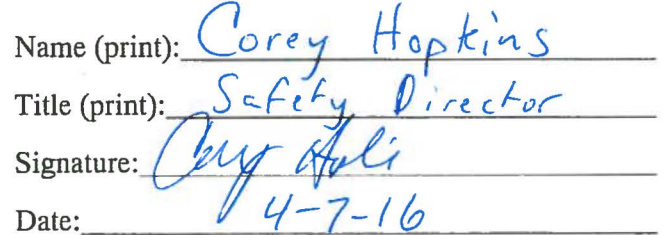 Name (print): Corey Hopkins
Title (print): Safety Director
Signature:
Date: 4-7-16